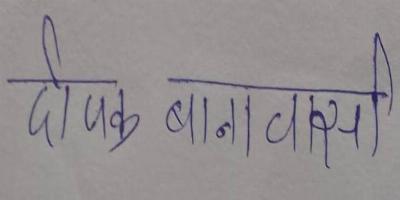 दीपक बानावासी